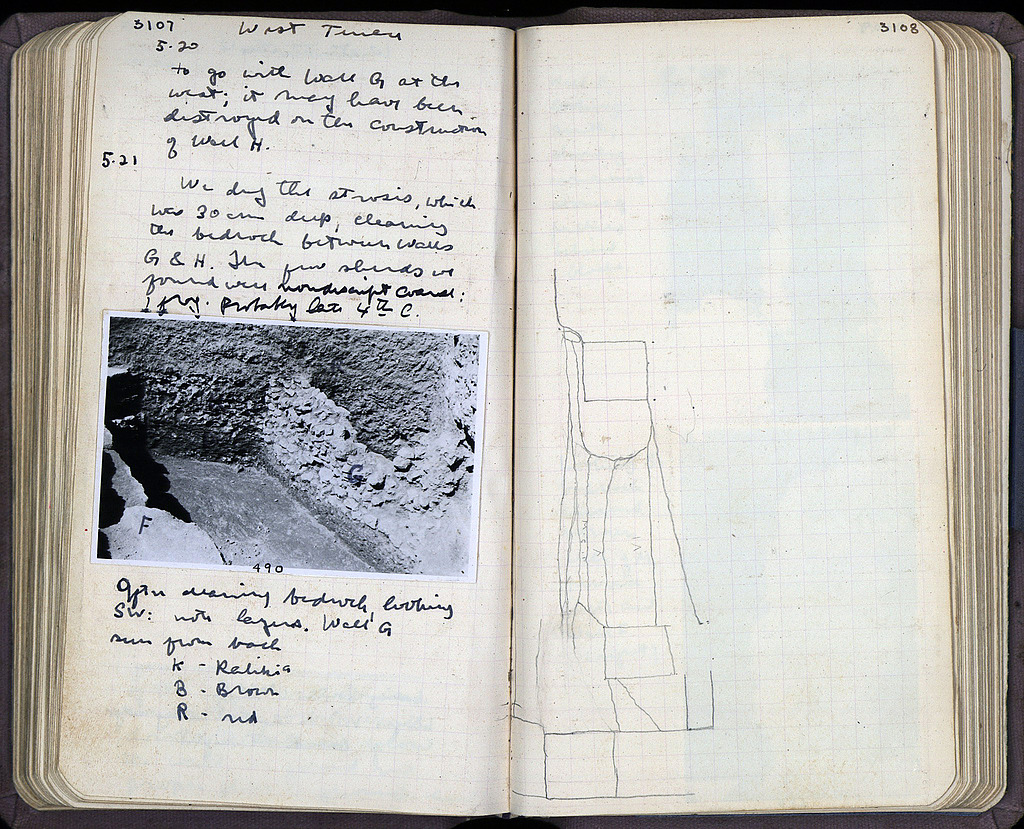 3107 West Trench
5.20
to go with Wall G at the
west; it may have been
destroyed on the construction
of Wall H.
5.21
We dug the strosis, which
was 30 cm deep, clearing
the bedrock between Walls
G & H. The few sherds we
found were nondescript coarse;
1 frg. probably late 4th C.
G
F
490
After cleaning bedrock, looking
SW: note layers. Wall G
seen from back
K - Kaliki
B - Brown
R - red
3108
V
VI